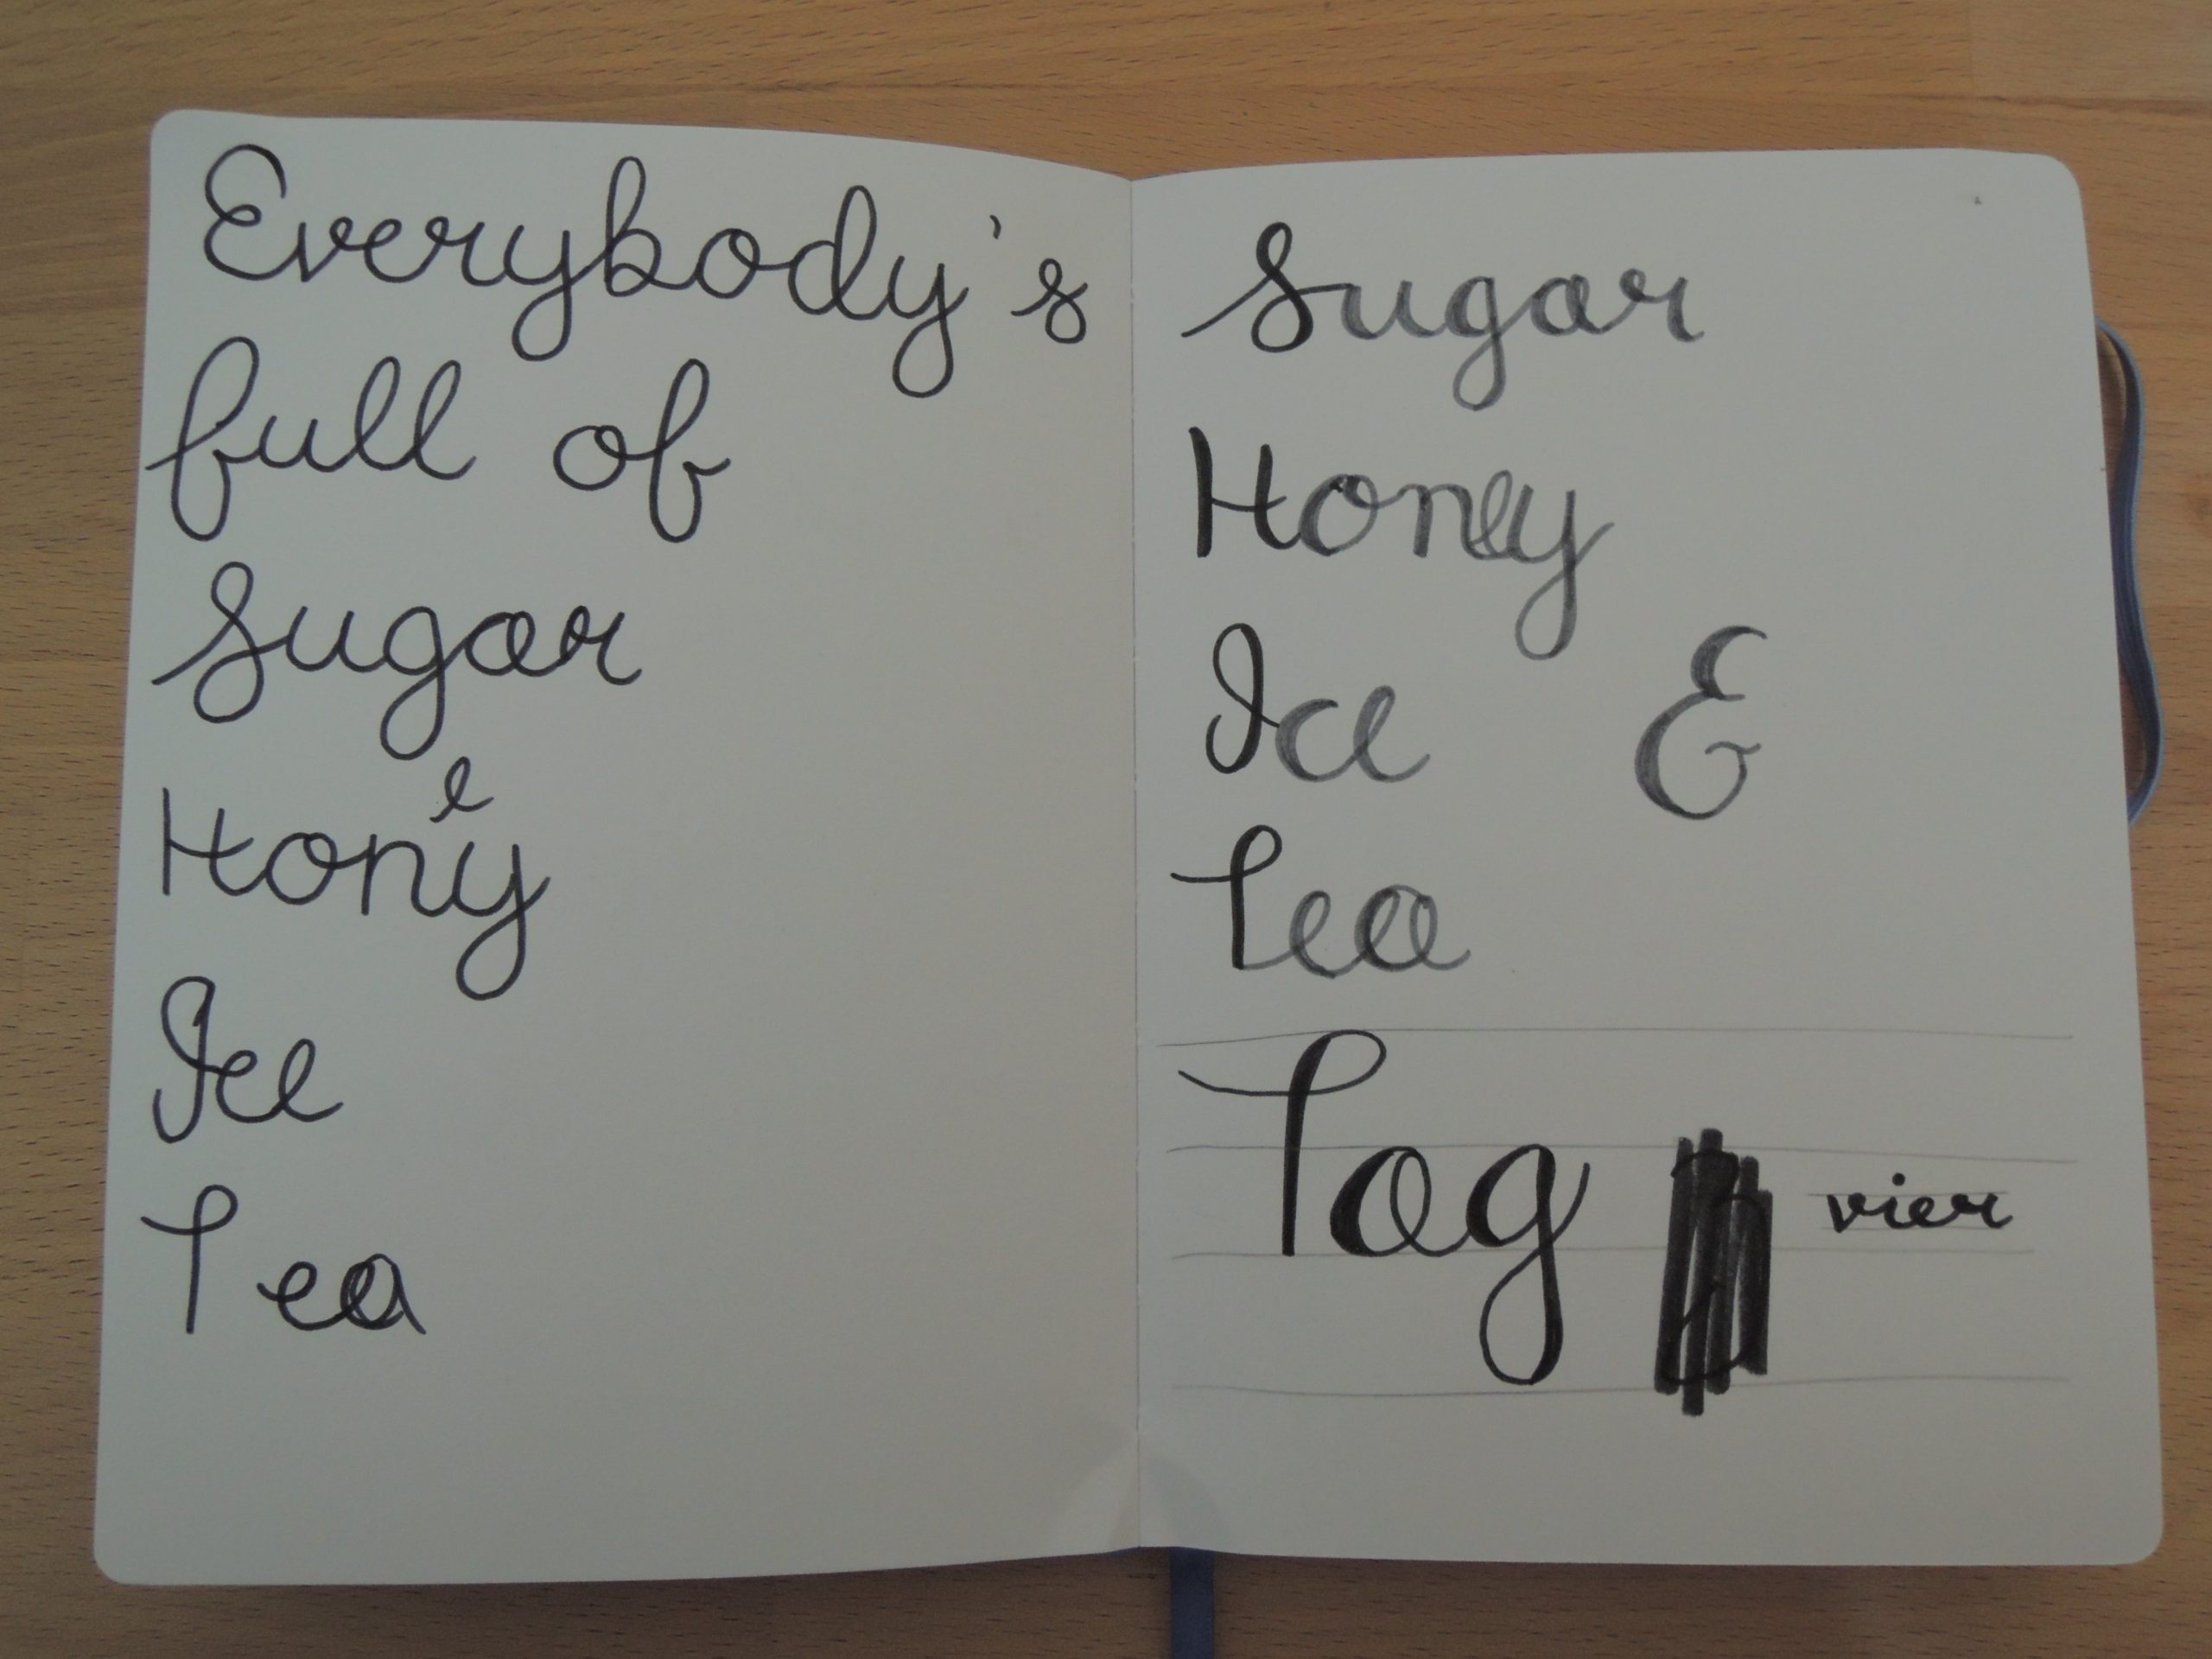 Everybody's
full of
Sugar
Honey
Ice
Tea
Sugar
Honey
Ice &
Tea
Tag vier